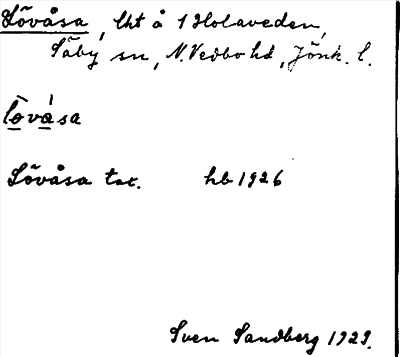 Lövåsa, lht å 1 Holaveden,
Säby sn, N. Vedbo hd, Jönk. l.
lòvàsa
Lövåsa tor. hb 1926
Sven Sandberg 1929.